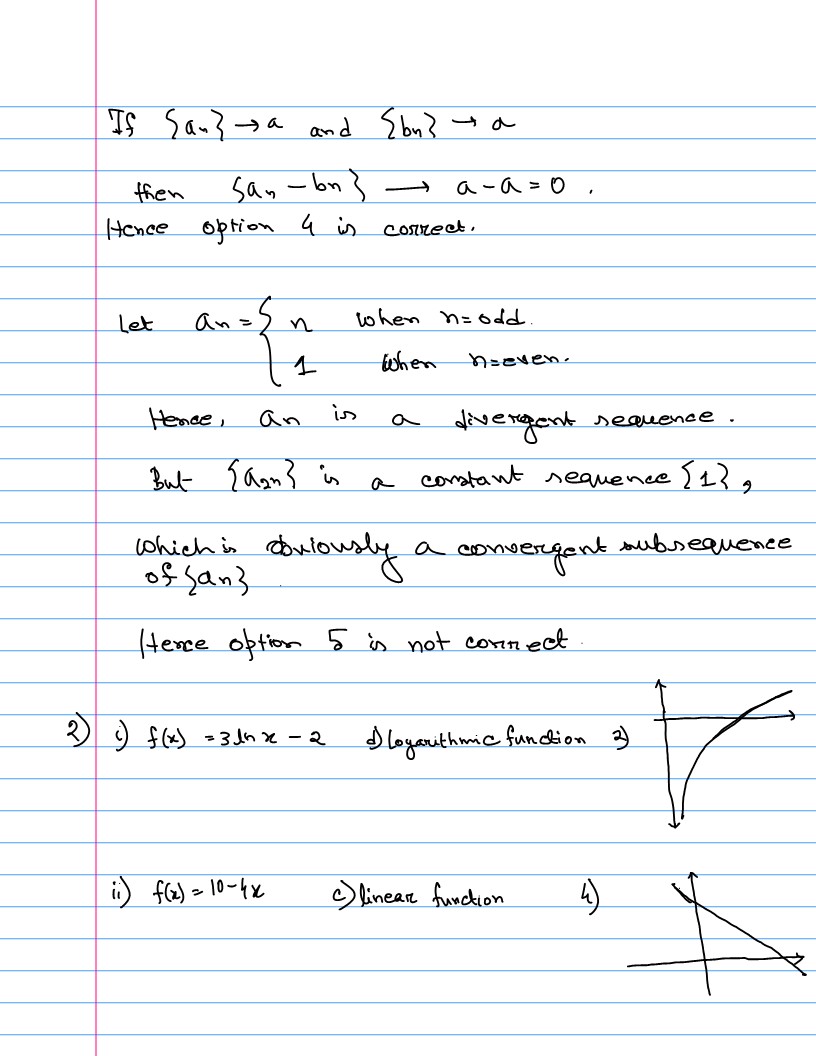 If {aₙ} → a and {bₙ} → a
then {aₙ - bₙ} → a - a = 0 .
Hence option 4 is correct.
Let aₙ = { n when n=odd.
1 when n=even.
Hence, aₙ is a divergent sequence .
But {a₂ₙ} is a constant sequence {1} ,
which is obviously a convergent subsequence
of {aₙ}
Hence option 5 is not correct .
2) i) f(x) = 3 ln x - 2 d) logarithmic function 2)
ii) f(x) = 10-4x c) linear function 4)